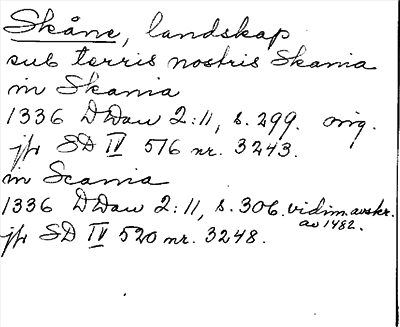 Skåne, landskap
sub terris nostris Skania
in Skania
1336 DDan 2:11, s. 299. orig.
jfr SD IV 516 nr. 3243.
in Scania
1336 DDan 2:11, s. 306. vidim. avskr.
av 1482.
jfr SD IV 520 nr. 3248.